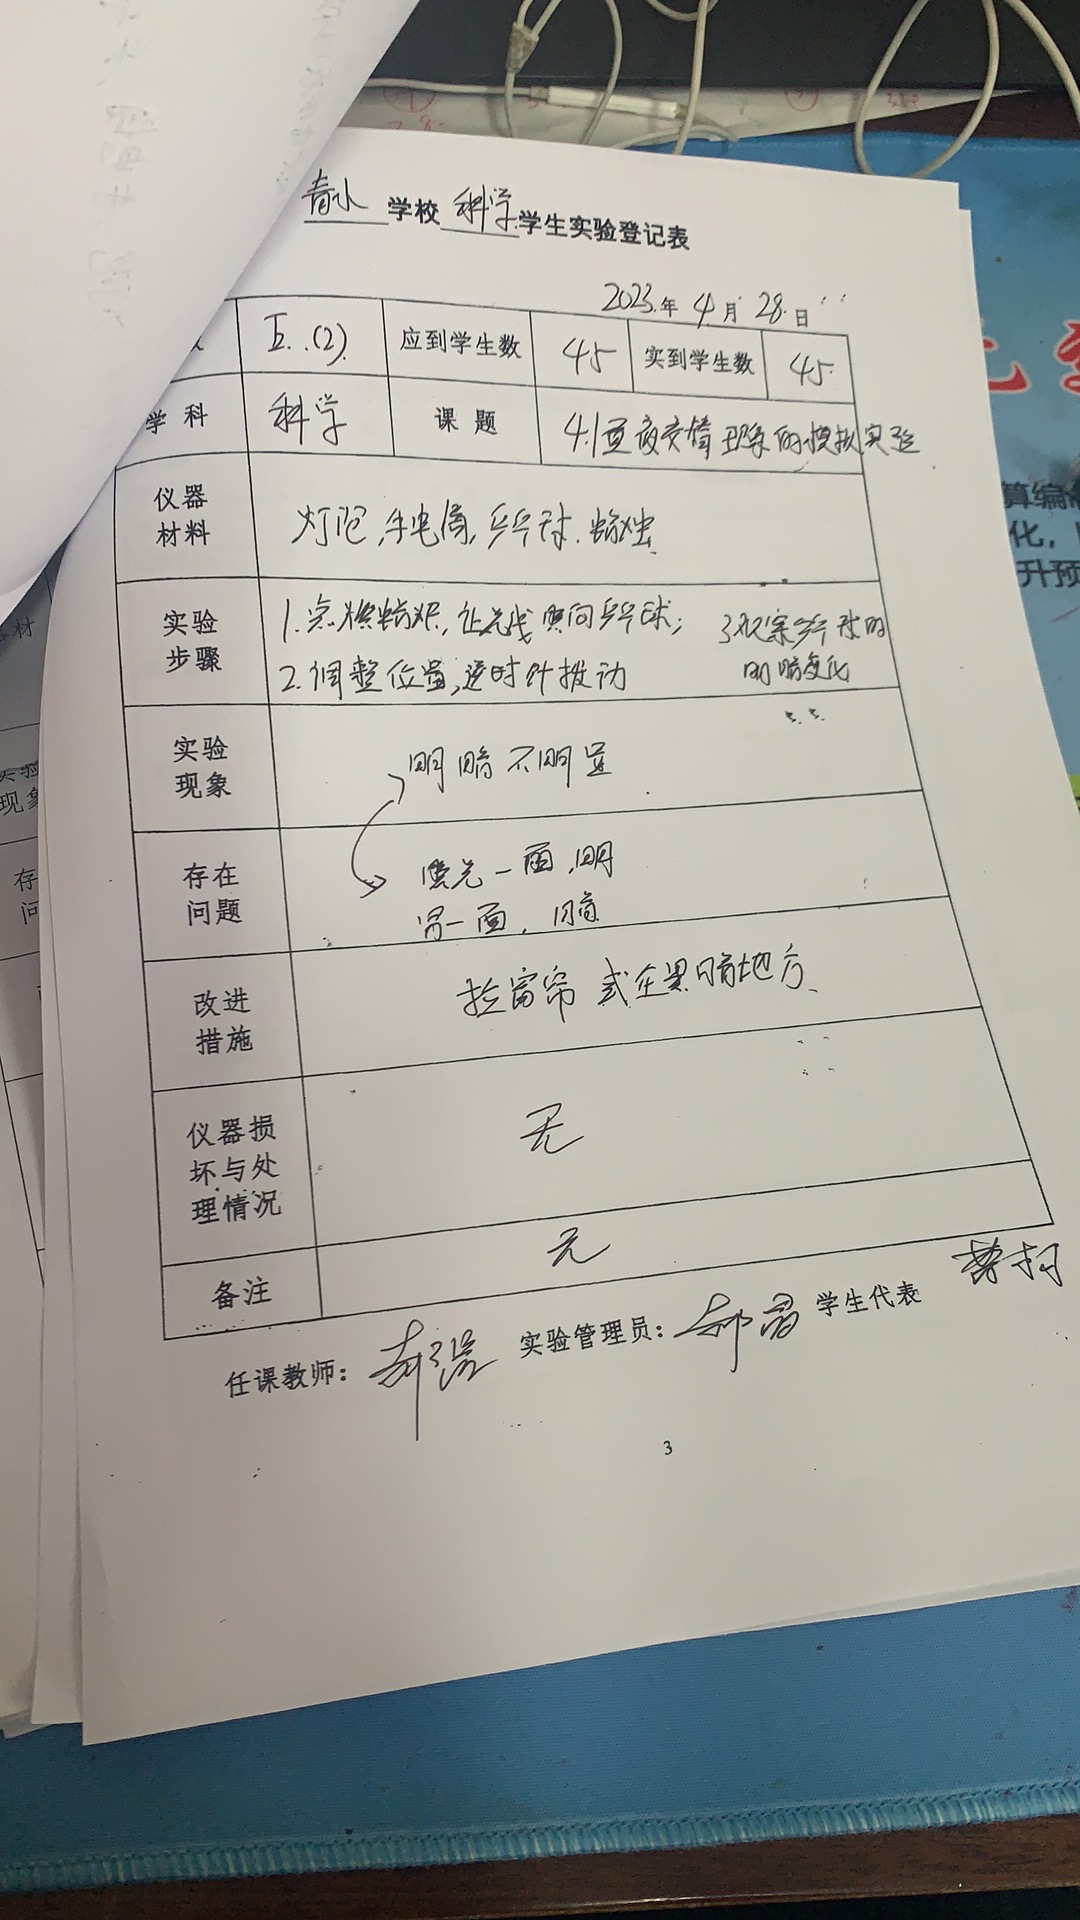 青山 学校 科学 学生实验登记表
2023年 4月 28日
五.(2) 应到学生数 45 实到学生数 45
学科 科学 课题 4.1昼夜交替现象的模拟实验
仪器材料 灯泡,手电筒,乒乓球.蜡烛
实验步骤 1.点燃蜡烛,让光线照向乒乓球; 3观察乒乓球的
2.调整位置,逆时针拨动 明暗变化
实验现象 明暗不明显
存在问题 照光一面,明
另一面,暗
改进措施 拉窗帘 或在黑暗地方
仪器损坏与处理情况 无
备注 无
任课教师: 实验管理员: 学生代表
3
算编
化,
升预